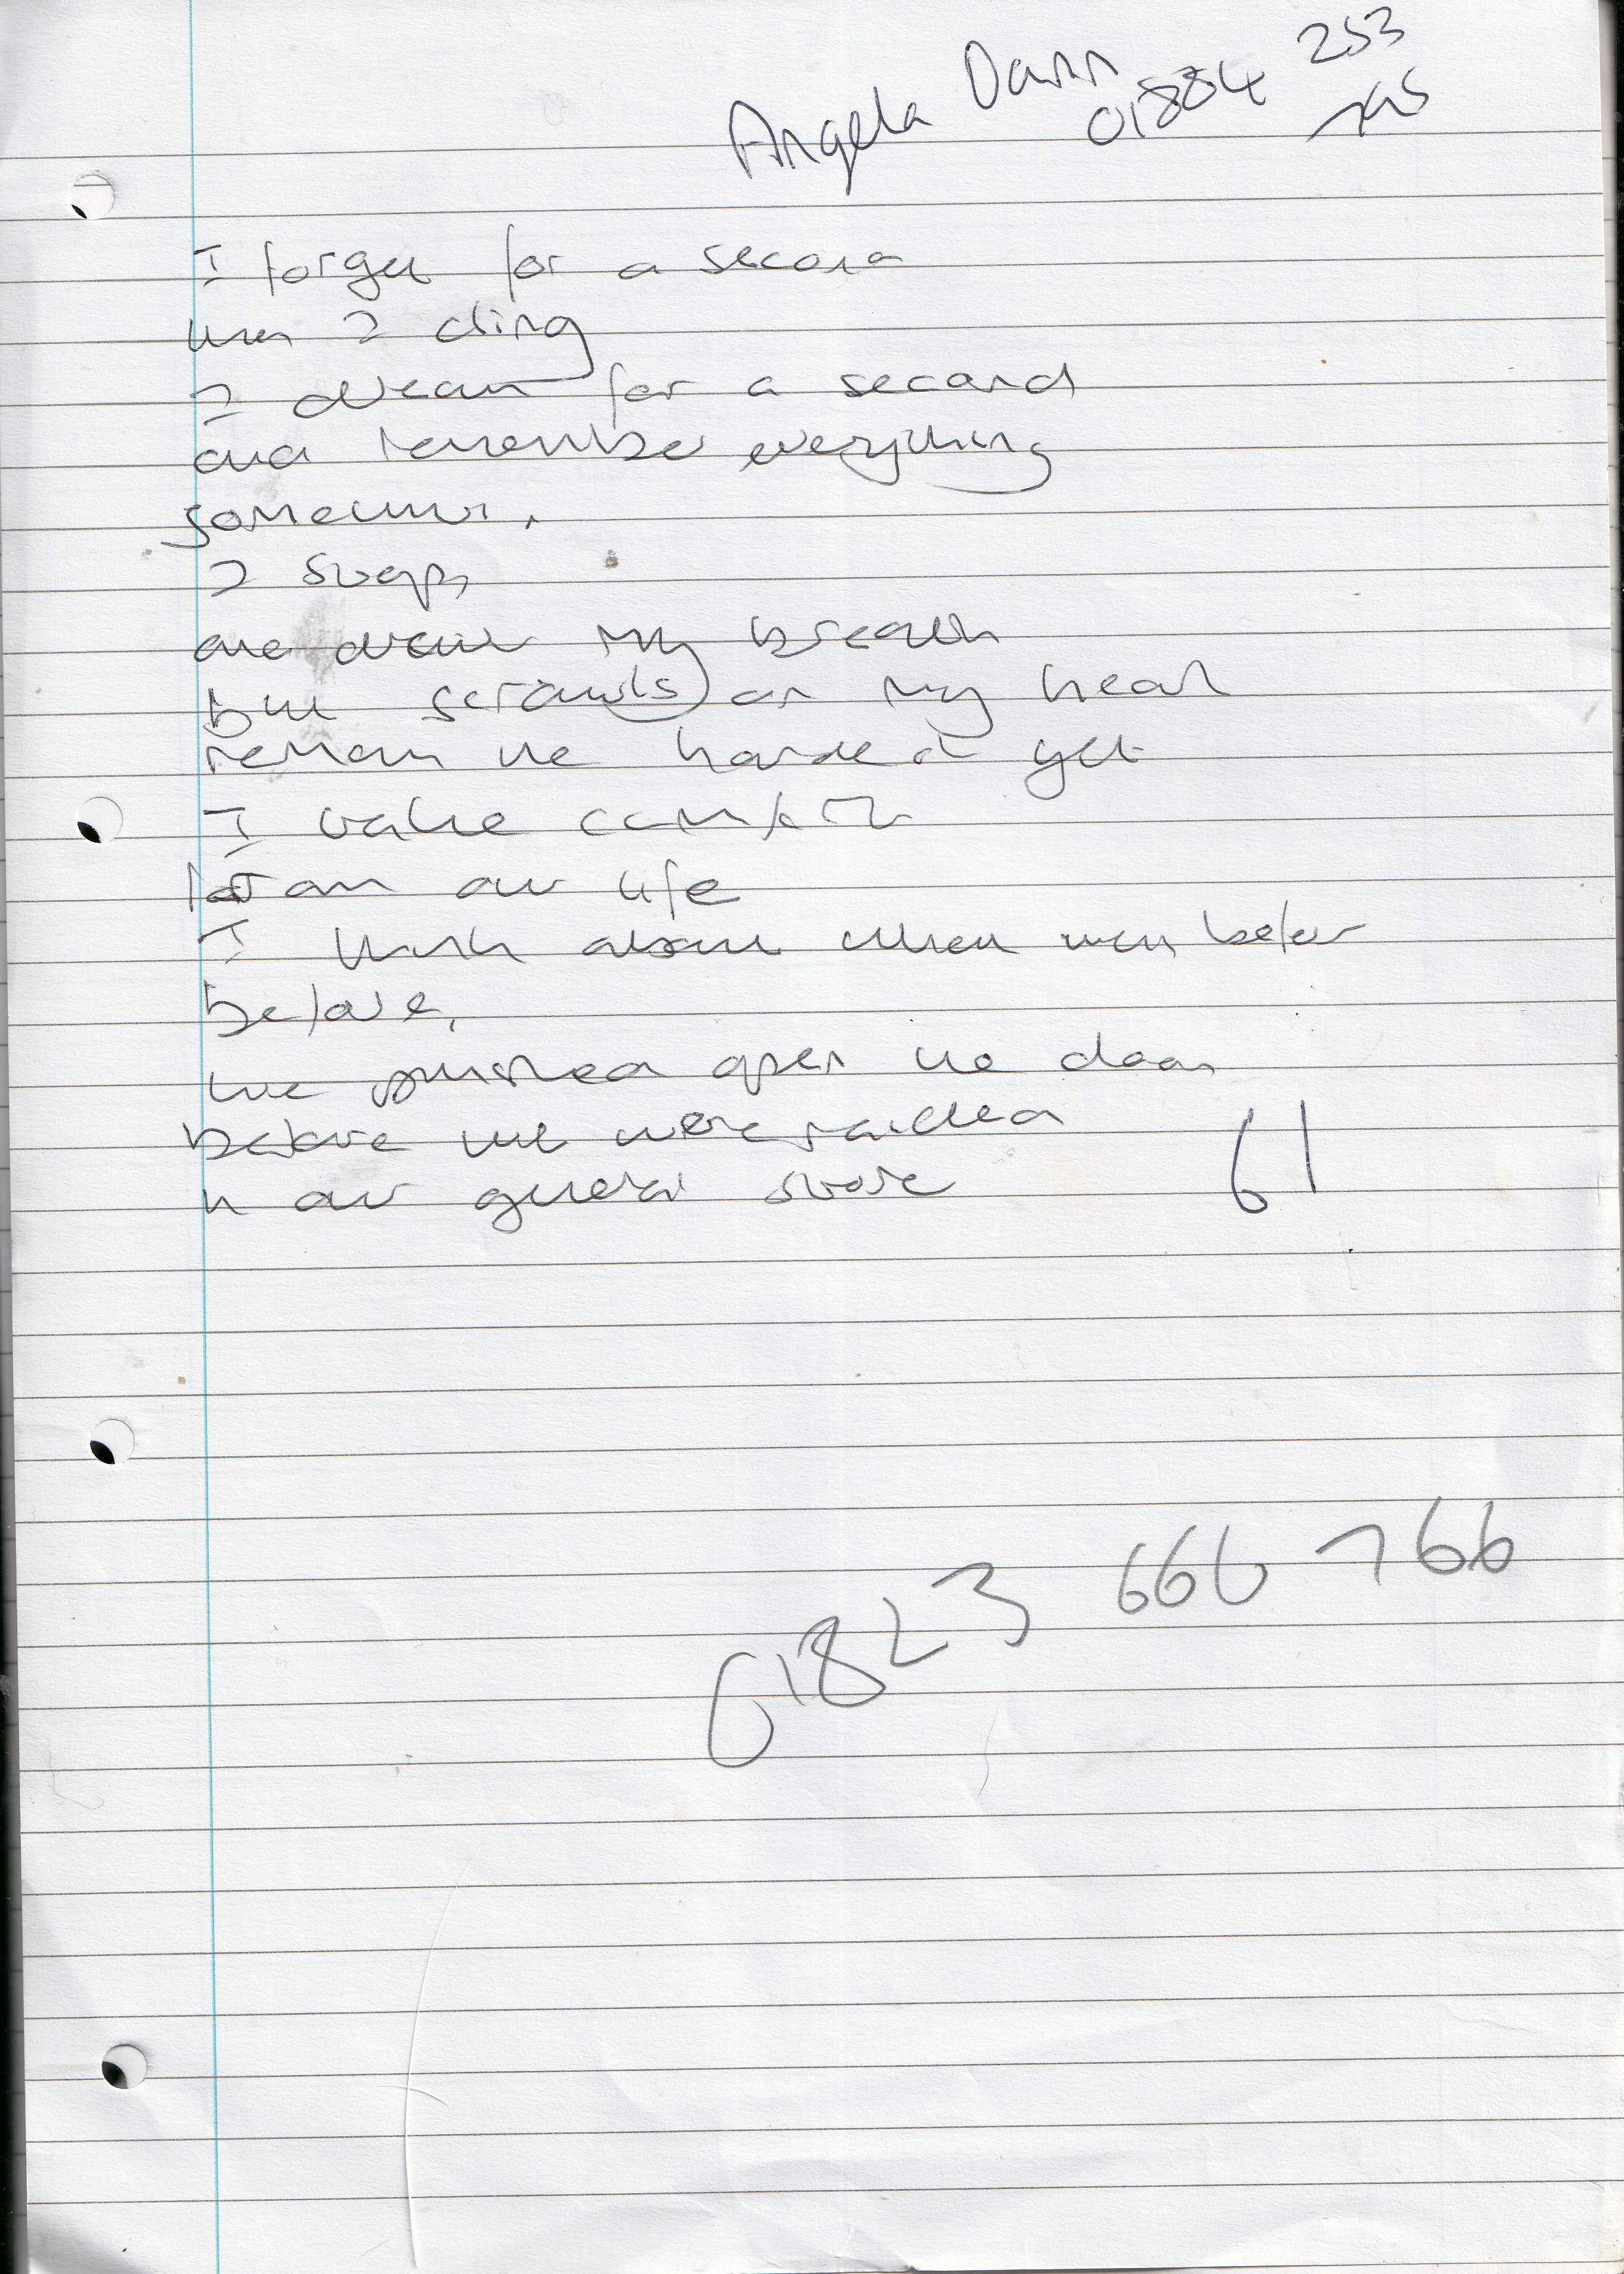 Angela Dann
01884 253
745
I forget for a second
then I cling
I dream for a second
and remember everything
somehow.
I stop,
and draw my breath
but scrawls on my heart
remain the hardest yet
I value comfort
our life
I think about when men before
before,
we pushed open the door
before we were raided
in our general store
61
01823 666 766